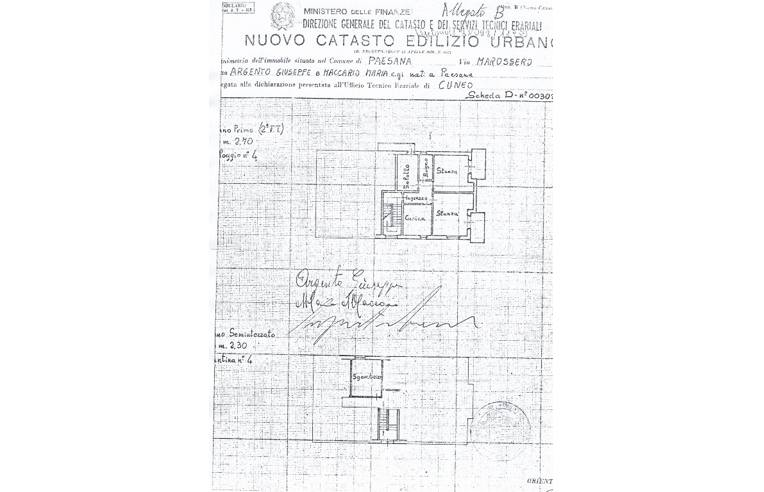 Allegato B
MINISTERO DELLE FINANZE
DIREZIONE GENERALE DEL CATASTO E DEI SERVIZI TECNICI ERARIALI
NUOVO CATASTO EDILIZIO URBANO
nimetria dell'immobile situato nel Comune di PAESANA Via MAROSSERO
ARGENTO GIUSEPPE e MACCARIO MARIA c.gi nat. a Paesana
egata alla dichiarazione presentata all'Ufficio Tecnico Erariale di CUNEO
Scheda D-n°
no Primo (2°F.T.)
m. 2,70
lloggio n° 4
Salotto
Bagno
Stanza
Ingresso
Cucina
Stanza
Argento Giuseppe
no Seminterrato
m. 2,30
antina n° 4
Sgombero
ORIENT